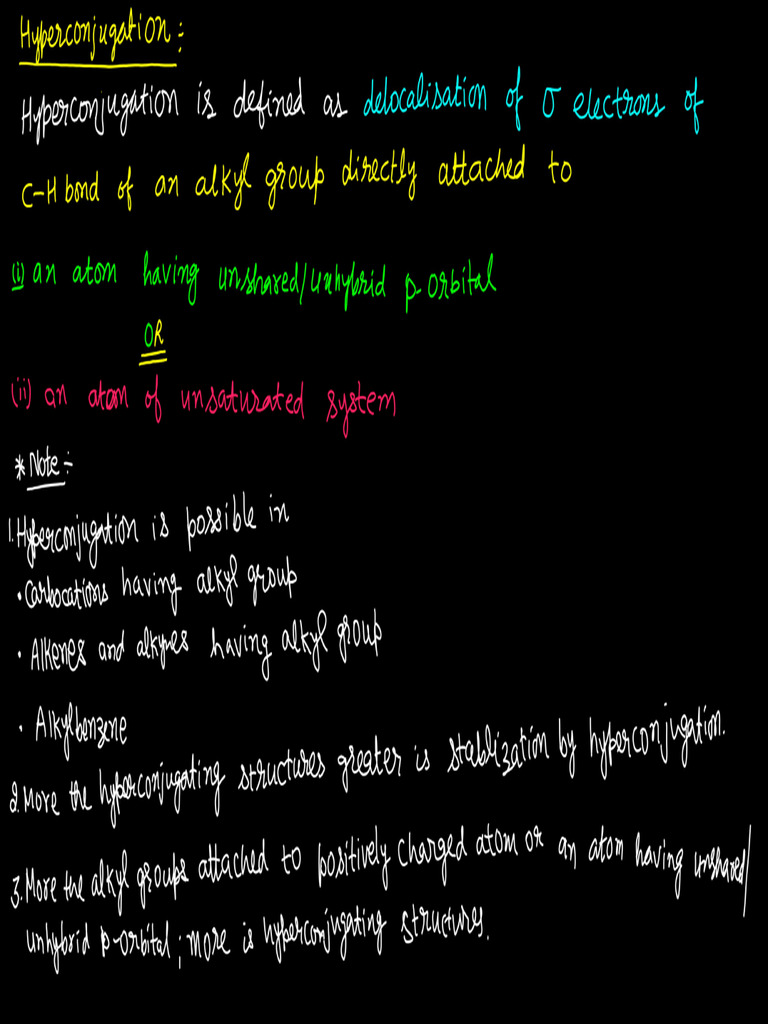 Hyperconjugation:
Hyperconjugation is defined as delocalisation of σ electrons of
C-H bond of an alkyl group directly attached to
(i) an atom having unshared/unhybrid p-orbital
OR
(ii) an atom of unsaturated system
* Note:-
1. Hyperconjugation is possible in
• Carbocations having alkyl group
• Alkenes and alkynes having alkyl group
• Alkylbenzene
2. More the hyperconjugating structures greater is stablization by hyperconjugation.
3. More the alkyl groups attached to positively charged atom or an atom having unshared/
unhybrid p-orbital; more is hyperconjugating structures.